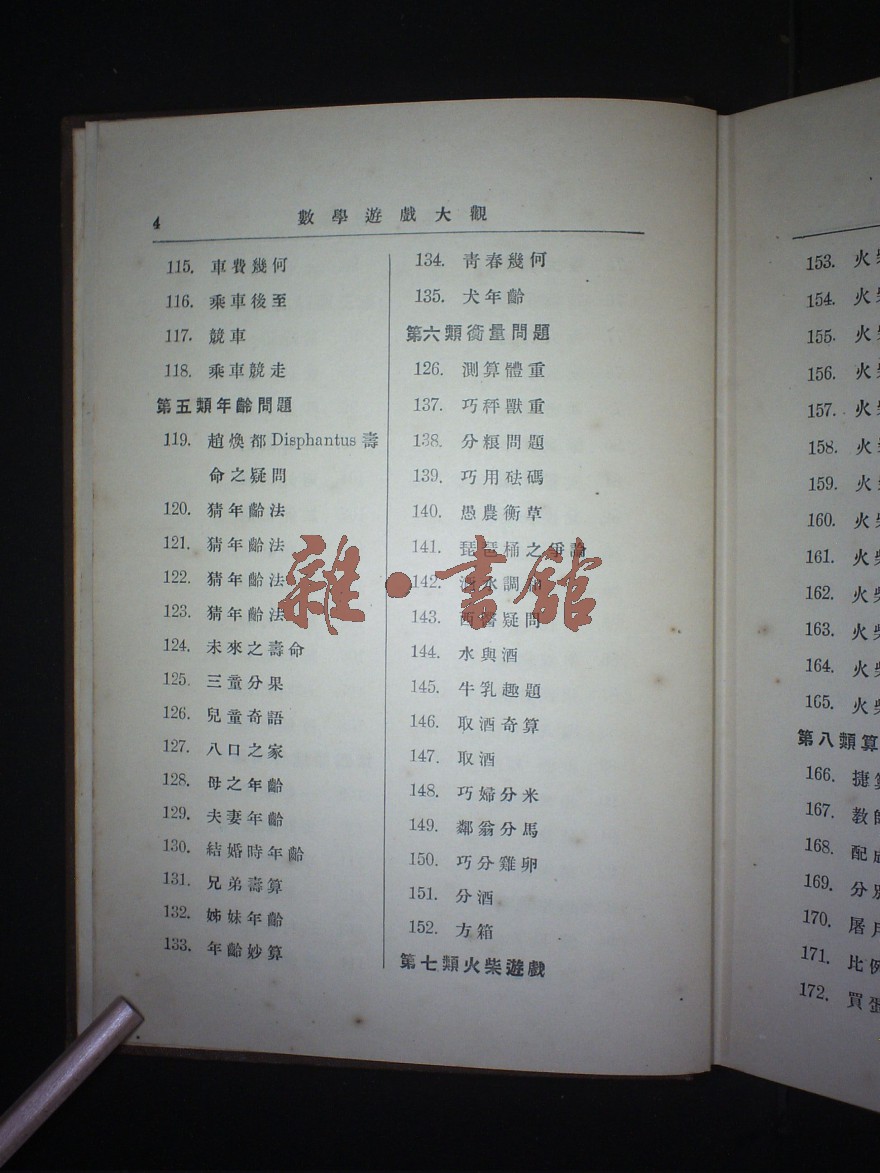 4
數學遊戲大觀
115. 車費幾何
116. 乘車後至
117. 競車
118. 乘車競走
第五類年齡問題
119. 趙煥都 Disphantus 壽
命之疑問
120. 猜年齡法
121. 猜年齡法
122. 猜年齡法
123. 猜年齡法
124. 未來之壽命
125. 三童分果
126. 兒童奇語
127. 八口之家
128. 母之年齡
129. 夫妻年齡
130. 結婚時年齡
131. 兄弟壽算
132. 姊妹年齡
133. 年齡妙算
134. 靑春幾何
135. 犬年齡
第六類衡量問題
126. 測算體重
137. 巧秤獸重
138. 分粮問題
139. 巧用砝碼
140. 愚農衡草
141. 琵琶桶之爭論
142. 水調
143. 西醫疑問
144. 水與酒
145. 牛乳趣題
146. 取酒奇算
147. 取酒
148. 巧婦分米
149. 鄰翁分馬
150. 巧分雞卵
151. 分酒
152. 方箱
第七類火柴遊戲
雜·書館
153. 火
154. 火
155. 火
156. 火
157. 火
158. 火
159. 火
160. 火
161. 火
162. 火
163. 火
164. 火
165. 火
第八類算
166. 捷
167. 教
168. 配
169. 分
170. 屠
171. 比
172. 買